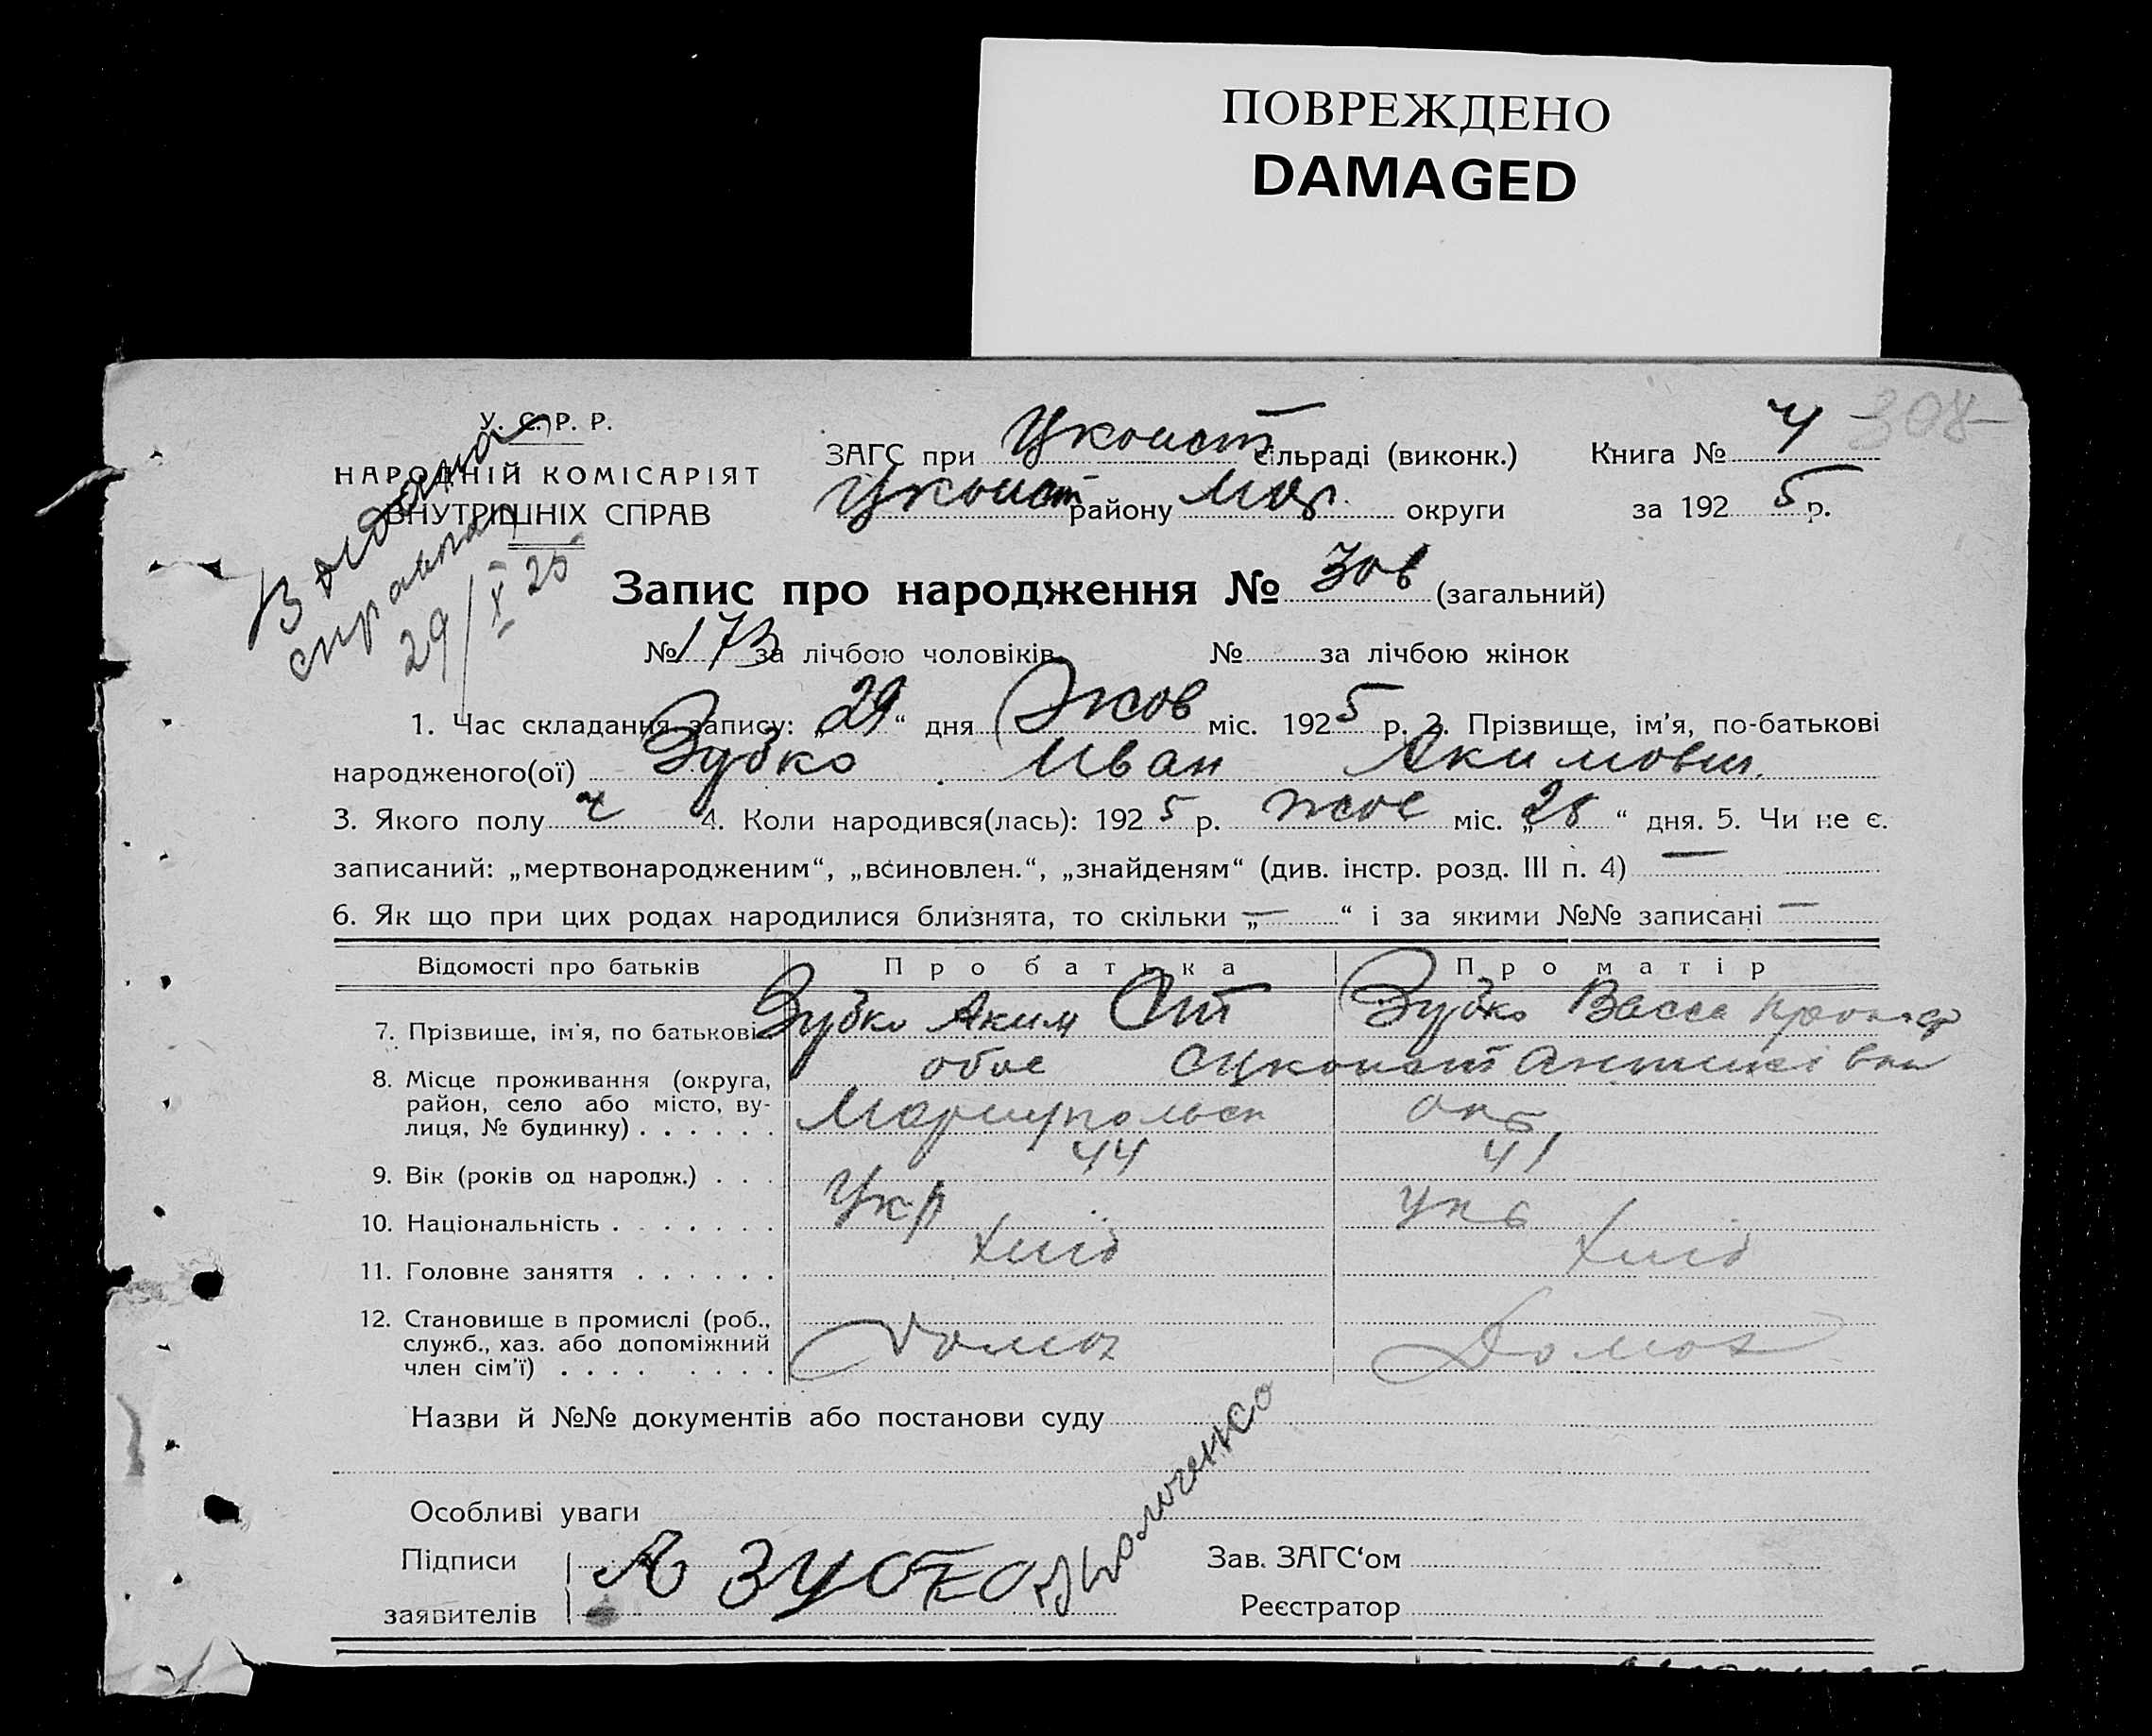 ПОВРЕЖДЕНО
DAMAGED
У. С. Р. Р.
НАРОДНІЙ КОМІСАРІЯТ
ВНУТРІШНІХ СПРАВ
Видана
справка
29/X 25
ЗАГС при Цконст сільраді (виконк.) Книга № 4 308
Цконст району Мар. округи за 1925 р.
Запис про народження № 308 (загальний)
№ 173 за лічбою чоловіків № за лічбою жінок
1. Час складання запису: „29“ дня Жов міс. 1925 р. 2. Прізвище, ім'я, по-батькові
народженого(ої) Зубко Иван Акимович
3. Якого полу ч 4. Коли народився(лась): 1925 р. жов міс. „28“ дня. 5. Чи не є.
записаний: „мертвонародженим“, „всиновлен.“, „знайденям“ (див. інстр. розд. III п. 4) —
6. Як що при цих родах народилися близнята, то скільки „—“ і за якими №№ записані —
Відомості про батьків Про батька Про матір
7. Прізвище, ім'я, по батькові Зубко Аким Зубко Васса
8. Місце проживання (округа, обое
район, село або місто, ву- Мариупольск окр
лиця, № будинку) . . . . . .
9. Вік (років од народж.) . . . 44 41
10. Національність . . . . . . . Укр укр
11. Головне заняття . . . . . . хлід хлід
12. Становище в промислі (роб.,
служб., хаз. або допоміжний Домох Домох
член сім'ї) . . . . . . . .
Назви й №№ документів або постанови суду
Особливі уваги
Підписи А Зубко Зав. ЗАГС‘ом
заявителів Реєстратор